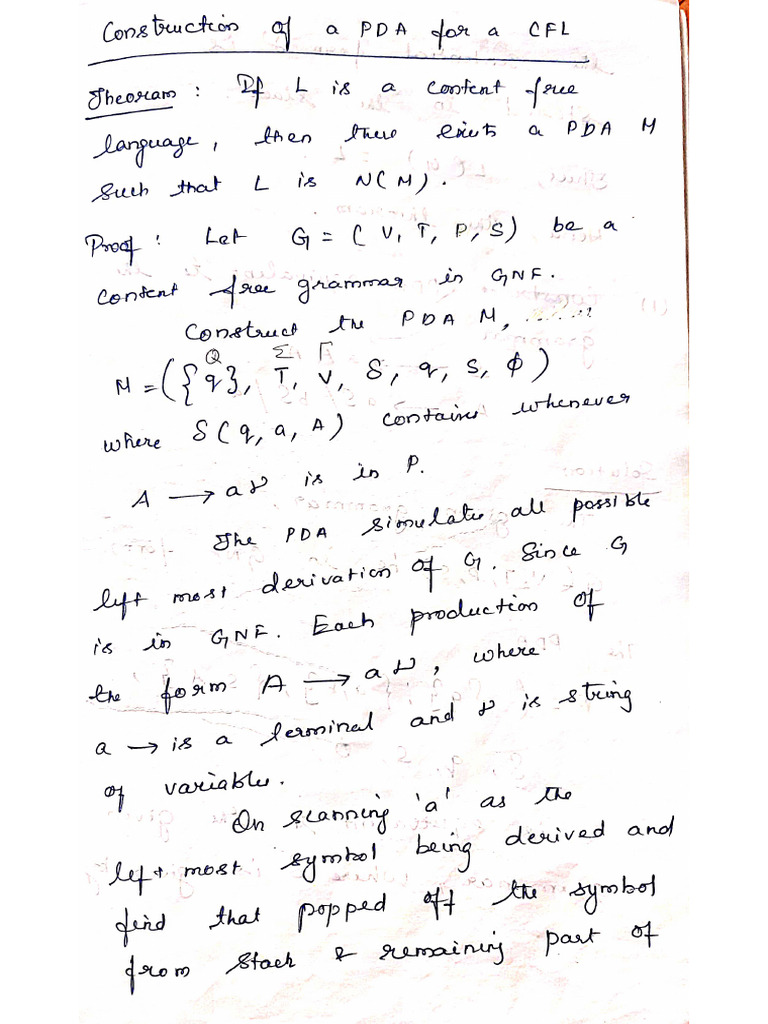 Construction of a PDA for a CFL
Theoram : If L is a content free
language, then there exists a PDA M
such that L is N(M).
Proof : Let G = ( V, T, P, S ) be a
content free grammar in GNF.
Construct the PDA M, ......
Q Σ Γ
M = ({q}, T, V, δ, q, S, ϕ)
where δ(q, a, A) contains whenever
A → aγ is in P.
The PDA simulates all possible
left most derivation of G. Since G
is in GNF. Each production of
the form A → aγ, where
a → is a terminal and γ is string
of variable.
On scanning 'a' as the
left most symbol being derived and
find that popped off the symbol
from stack & remaining part of